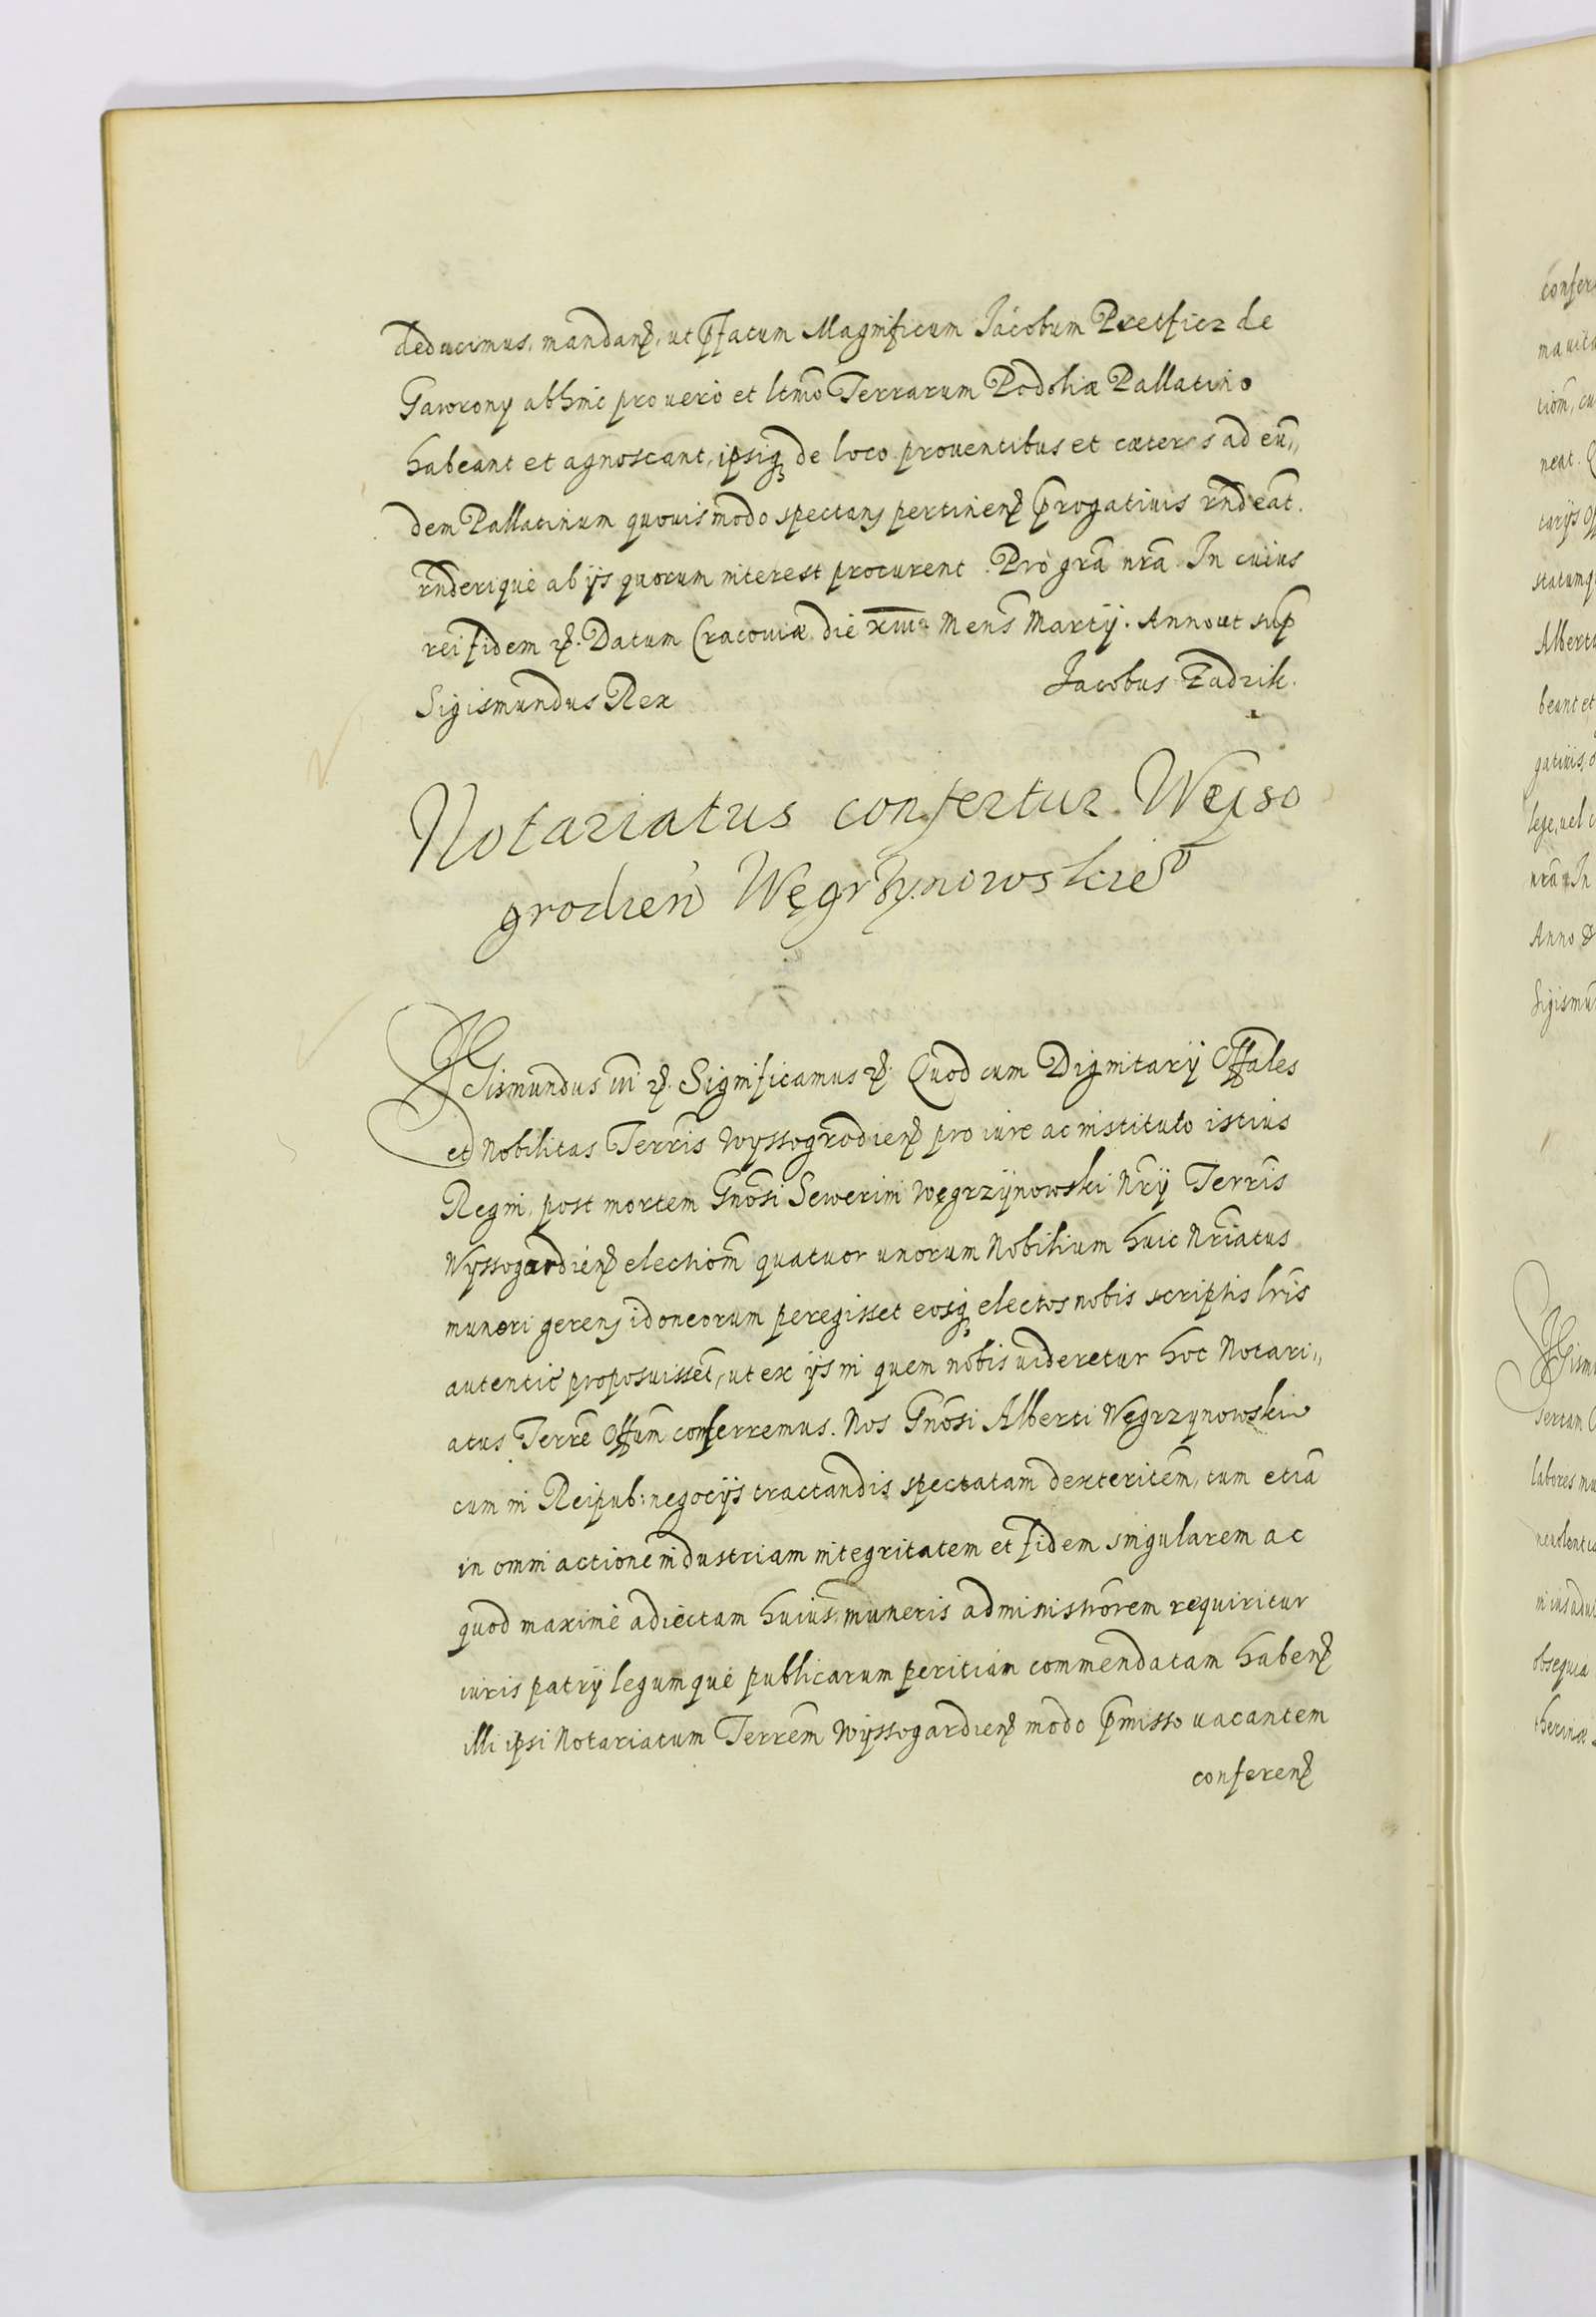 deducimus, mandanꝫ, ut p̄fatum Magnificum Jacobum Pretficz de
Gawrony abhinc pro uero et ltm̄o Terrarum Podoliæ Pallatino
habeant et agnoscant, ipsiqꝫ de loco prouentibus et cæteris ad eū„
dem Pallatinum quouis modo spectanꝫ pertinenꝫ p̄rogatiuis rn̄deāt.
rn̄derique ab ijs quorum interest procurent. Pro grā nrā. In cuius
rei fidem ꝛꝭ. Datum Cracouiæ die Mens̄ Martij. Anno ut sup̄
Sigismundus Rex Jacobus Zadzik.
Notariatus confertur Weiso
grodien̄ Węgrzynowskieº
Sigismundus III ꝛꝭ. Significamus ꝛꝭ. Quod cum Dignitarij Off̄ales
et Nobilitas Terrīs Wyssogrodienꝫ pro iure ac instituto istius
Regni, post mortem Gn̄osi Sewerini Węgrzijnowski Nr̄ij Terrīs
Wyssogardienꝫ electiōm quatuor unorum Nobilium huic Nr̄iatus
muneri gerenꝫ idoneorum peregisset eosqꝫ electos nobis scriptis lr̄is
autentic̄ proposuissēt, ut ex ijs ni quem nobis uideretur hoc Notari„
atus Terrē Offūm conferremus. Nos Gn̄osi Alberti Węgrzynowski
cum in Reipub: negocijs tractandis spectatam dexteritēm, tum etiā
in omni actione industriam integritatem et fidem singularem ac
quod maxime adiectam huius muneris administrōrem requiritur
iuris patrij legumque publicarum peritiam commendatam habenꝫ
illi ipsi Notariatum Terrēm Wyssogardienꝫ modo p̄misso uacantem
conferenꝫ